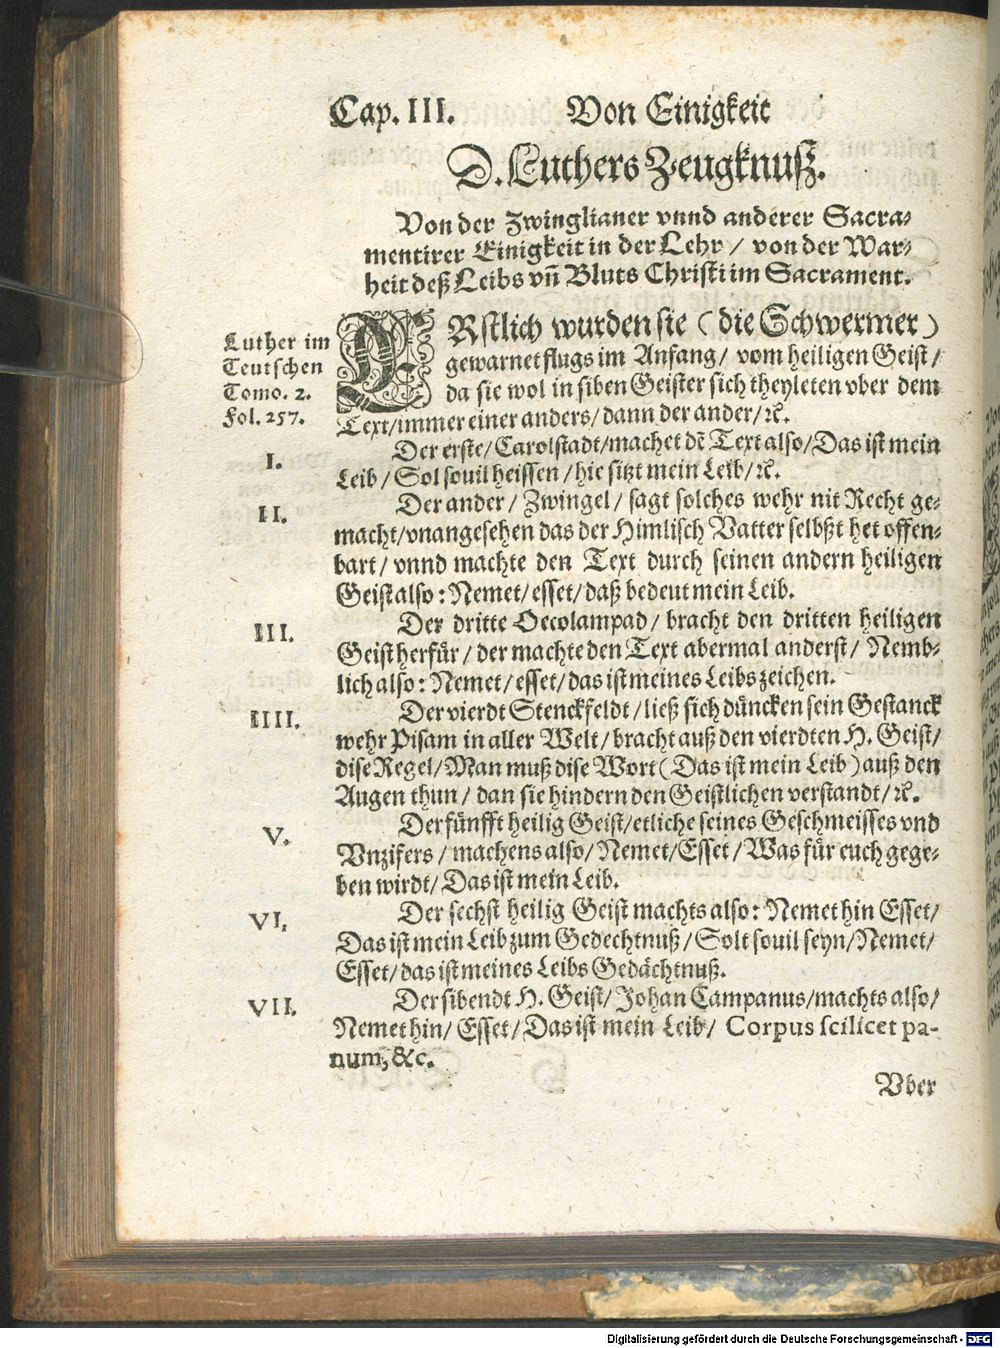 Cap. III. Von Einigkeit
D. Luthers Zeugknuß.
Von der Zwinglianer vnnd anderer Sacra-
mentirer Einigkeit in der Lehr / von der War-
heit deß Leibs vñ Bluts Christi im Sacrament.
Luther im
Teutschen
Tomo. 2.
Fol. 257.
ERstlich wurden sie ( die Schwermer )
gewarnet flugs im Anfang / vom heiligen Geist /
da sie wol in siben Geister sich theyleten vber dem
Text / immer einer anders / dann der ander / ꝛc.
I.
Der erste / Carolstadt / machet dē Text also / Das ist mein
Leib / Sol souil heissen / hie sitzt mein Leib / ꝛc.
II.
Der ander / Zwingel / sagt solches wehr nit Recht ge-
macht / vnangesehen das der Himlisch Vatter selbßt het offen-
bart / vnnd machte den Text durch seinen andern heiligen
Geist also : Nemet / esset / daß bedeut mein Leib.
III.
Der dritte Oecolampad / bracht den dritten heiligen
Geist herfür / der machte den Text abermal anderst / Nemb-
lich also : Nemet / esset / das ist meines Leibs zeichen.
IIII.
Der vierdt Stenckfeldt / ließ sich düncken sein Gestanck
wehr Pisam in aller Welt / bracht auß den vierdten H. Geist /
dise Regel / Man muß dise Wort ( Das ist mein Leib ) auß den
Augen thun / dan sie hindern den Geistlichen verstandt / ꝛc.
V.
Der fünfft heilig Geist / etliche seines Geschmeisses vnd
Vnzifers / machens also / Nemet / Esset / Was für euch gege-
ben wirdt / Das ist mein Leib.
VI.
Der sechst heilig Geist machts also : Nemet hin Esset /
Das ist mein Leib zum Gedechtnuß / Solt souil seyn / Nemet /
Esset / das ist meines Leibs Gedächtnuß.
VII.
Der sibendt H. Geist / Johan Campanus / machts also /
Nemet hin / Esset / Das ist mein Leib / Corpus scilicet pa-
num, &c.
Vber
Digitalisierung gefördert durch die Deutsche Forschungsgemeinschaft - DFG